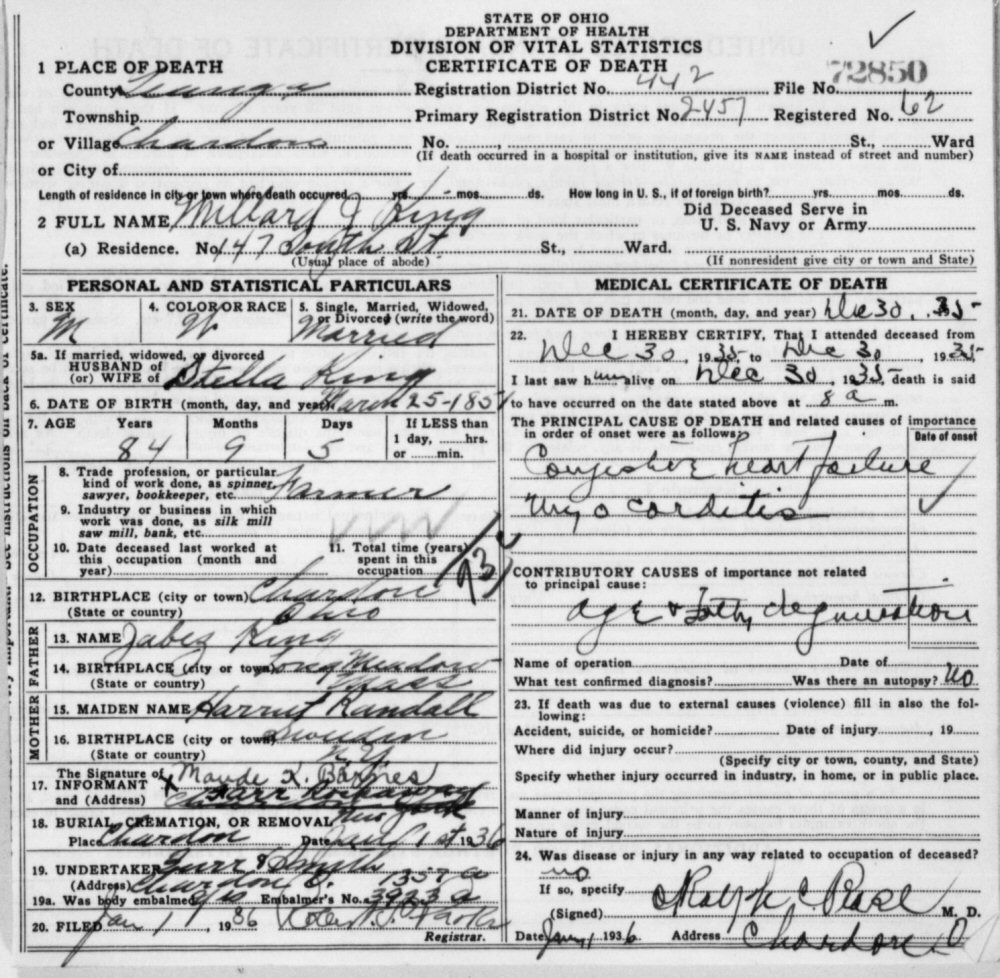 STATE OF OHIO
DEPARTMENT OF HEALTH
DIVISION OF VITAL STATISTICS
CERTIFICATE OF DEATH
72850
1 PLACE OF DEATH
County Geauga Registration District No. 442 File No.
Township Primary Registration District No. 2457 Registered No. 62
or Village Chardon No. , St., Ward
(If death occurred in a hospital or institution, give its NAME instead of street and number)
or City of
Length of residence in city or town where death occurred yrs. mos. ds. How long in U. S., if of foreign birth? yrs. mos. ds.
2 FULL NAME Millard J King Did Deceased Serve in U. S. Navy or Army
(a) Residence. No. 147 South St. St., Ward.
(Usual place of abode) (If nonresident give city or town and State)
PERSONAL AND STATISTICAL PARTICULARS
3. SEX M
4. COLOR OR RACE W
5. Single, Married, Widowed, or Divorced (write the word) Married
5a. If married, widowed, or divorced
HUSBAND of
(or) WIFE of Stella King
6. DATE OF BIRTH (month, day, and year) March 25-1851
7. AGE Years Months Days If LESS than
84 9 5 1 day, hrs.
or min.
OCCUPATION
8. Trade profession, or particular
kind of work done, as spinner,
sawyer, bookkeeper, etc. Farmer
9. Industry or business in which
work was done, as silk mill
saw mill, bank, etc.
10. Date deceased last worked at
this occupation (month and
year)
11. Total time (years)
spent in this
occupation
12. BIRTHPLACE (city or town) Chardon
(State or country) Ohio
FATHER
13. NAME Jabez King
14. BIRTHPLACE (city or town) Long Meadow
(State or country) Mass
MOTHER
15. MAIDEN NAME Harriet Randall
16. BIRTHPLACE (city or town) Sweden
(State or country) N.Y.
17. The Signature of
INFORMANT Maude K. Barnes
and (Address) New York
18. BURIAL, CREMATION, OR REMOVAL
Place Chardon Date Jany 1st 1936
19. UNDERTAKER & Smith
(Address) Chardon O. 1357 a
19a. Was body embalmed Embalmer's No. 3923 a
20. FILED Jan 1, 1936
Registrar.
MEDICAL CERTIFICATE OF DEATH
21. DATE OF DEATH (month, day, and year) Dec 30, 35
22. I HEREBY CERTIFY, That I attended deceased from
Dec 30, 1935 to Dec 30, 1935
I last saw him alive on Dec 30, 1935 death is said
to have occurred on the date stated above at 8 a m.
The PRINCIPAL CAUSE OF DEATH and related causes of importance
in order of onset were as follows:
Date of onset
Congestive heart failure
Myocarditis
CONTRIBUTORY CAUSES of importance not related
to principal cause:
age & fatty degeneration
Name of operation Date of
What test confirmed diagnosis? Was there an autopsy? no
23. If death was due to external causes (violence) fill in also the fol-
lowing:
Accident, suicide, or homicide? Date of injury , 19
Where did injury occur?
(Specify city or town, county, and State)
Specify whether injury occurred in industry, in home, or in public place.
Manner of injury
Nature of injury
24. Was disease or injury in any way related to occupation of deceased?
no
If so, specify
(Signed) Ralph C Pease M. D.
Date Jany 1 1936 Address Chardon, O